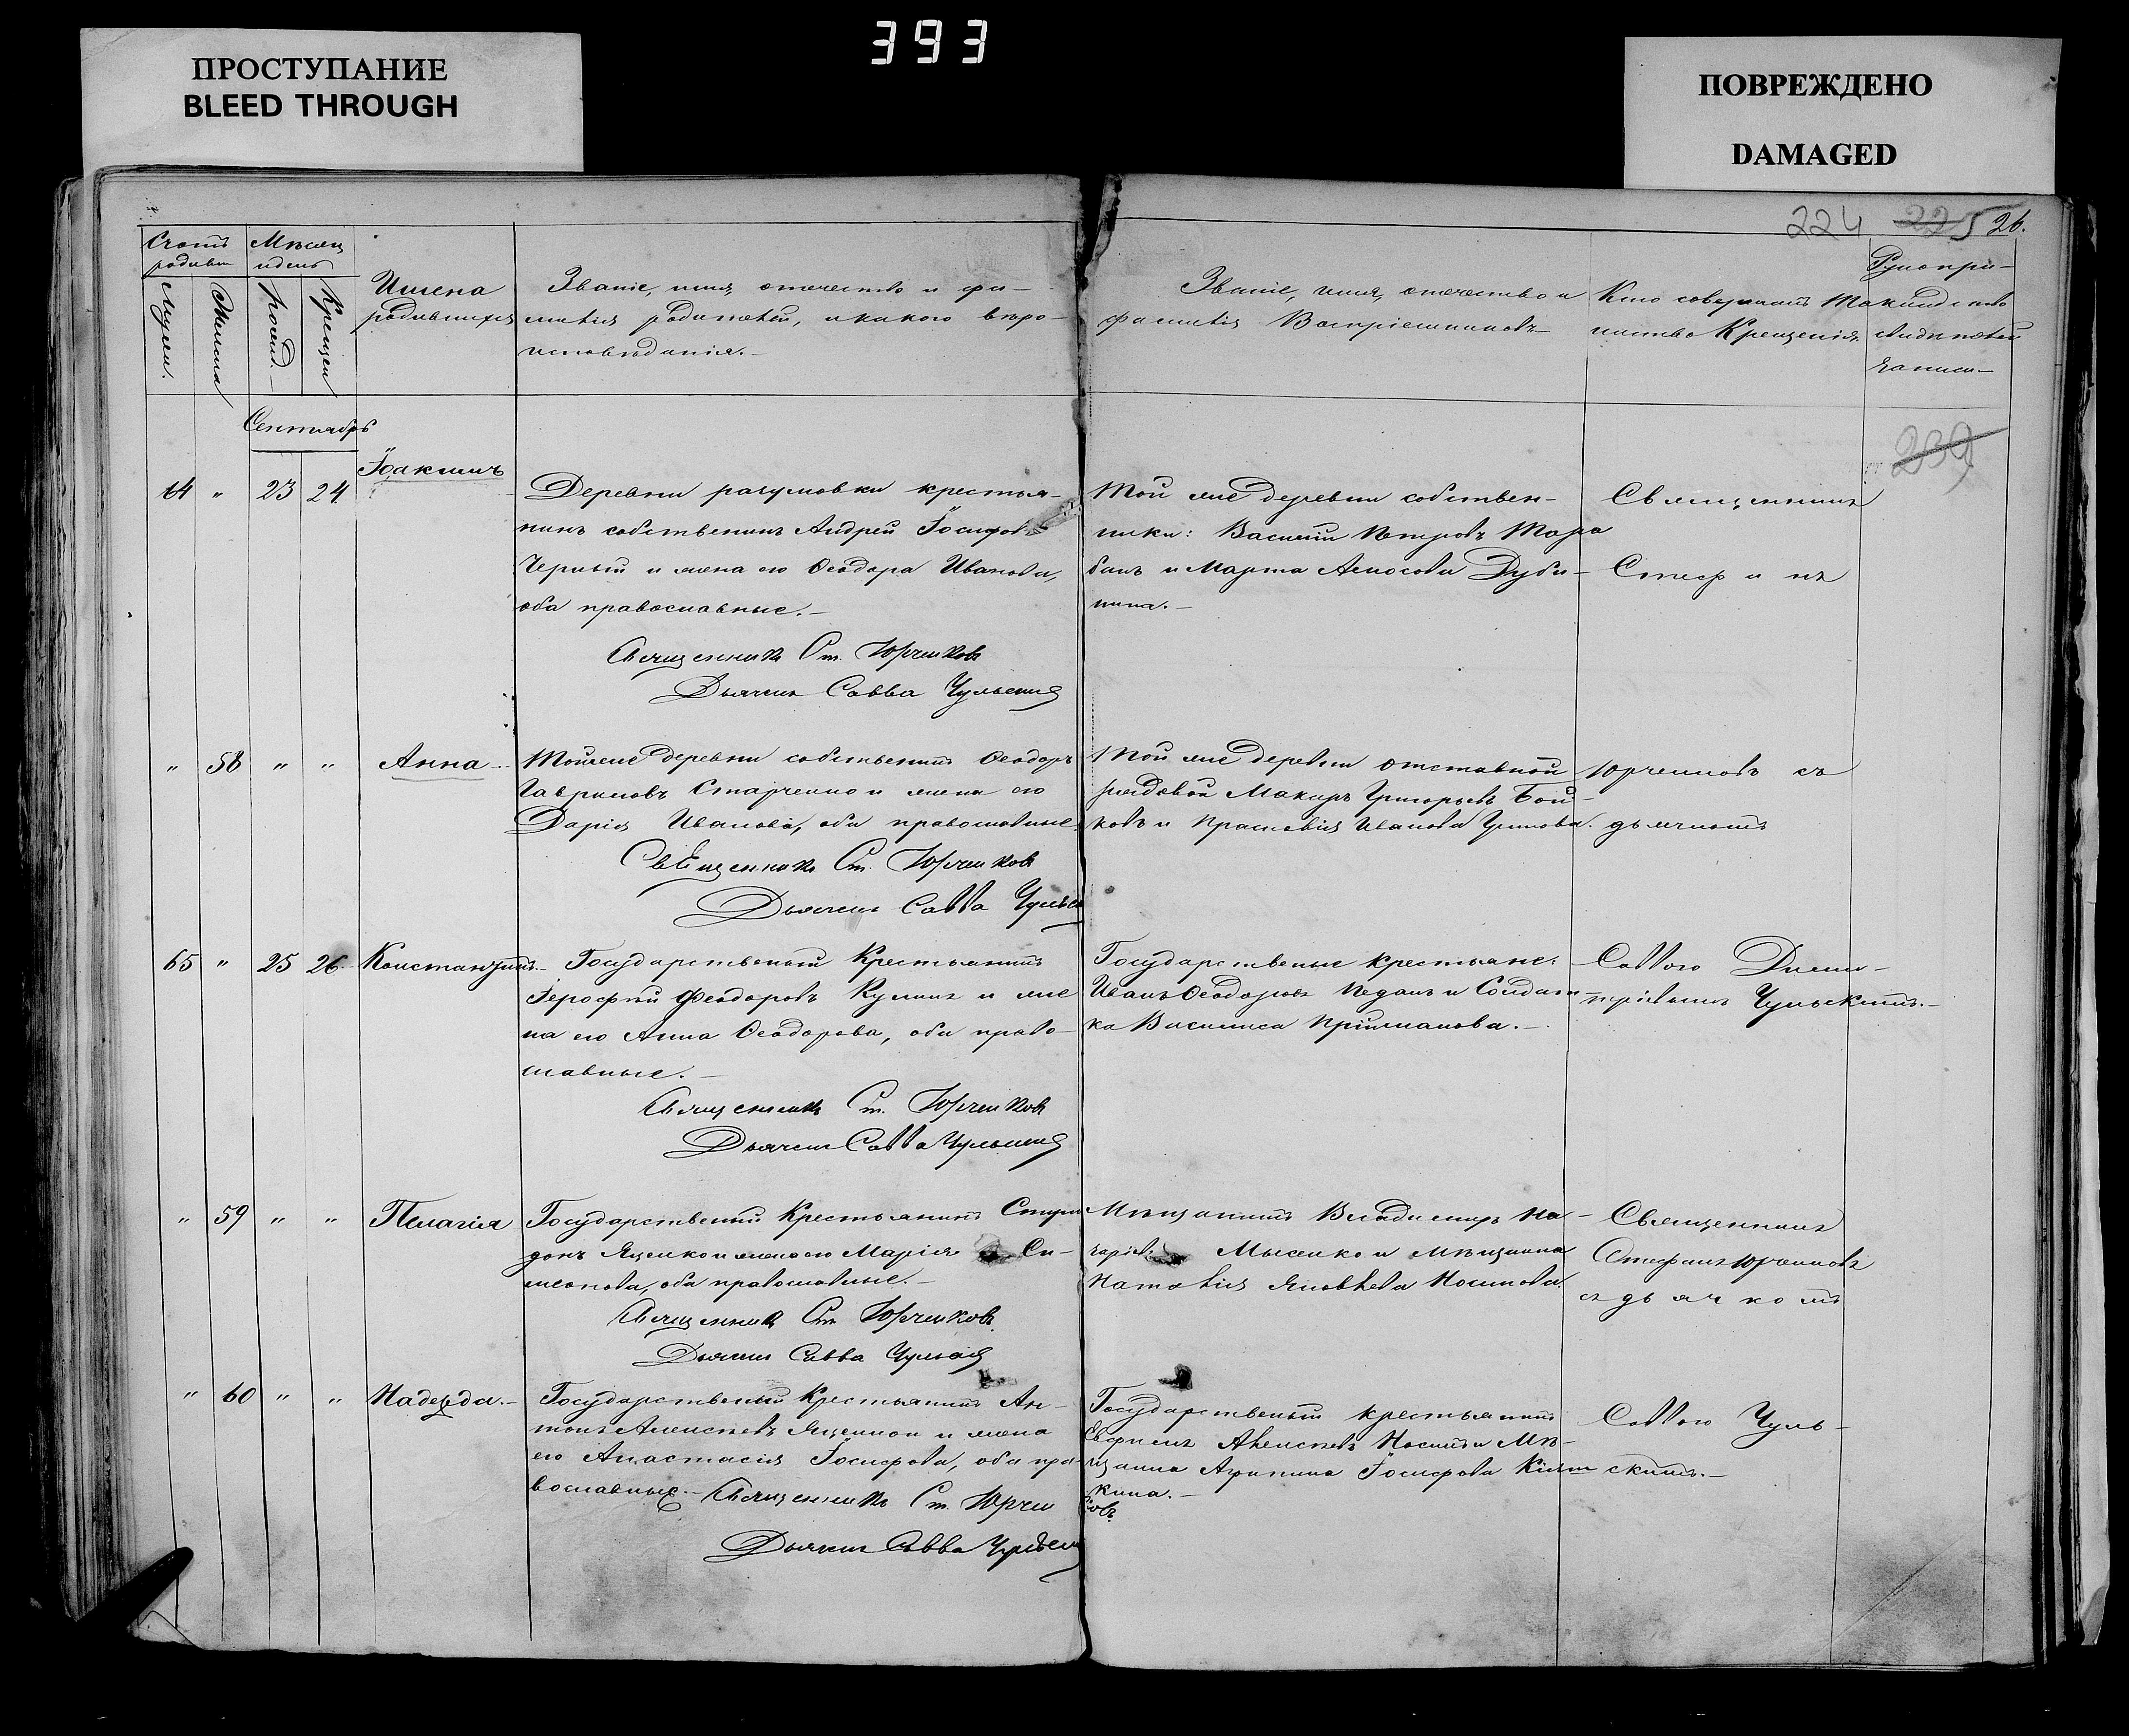 393
ПРОСТУПАНИЕ
BLEED THROUGH
ПОВРЕЖДЕНО
DAMAGED
224 225 26.
Счетъ родивш
Мѣсяц и день
Мужеск.
Женска
Рожд.
Крещен
Имена
родившихся
Званіе, имя, отечество и фа-
милія родителей, и какого вѣро-
исповѣданія.-
Званіе, имя, отечество и
фамилія Воспріемниковъ
Кто совершалъ Таин-
ство Крещенія.
Рукопри-
кладство
свидѣтелей
записи-
239
Сентябрь
64 " 23 24
Іоакимъ
Деревни разумовки крестья-
нинъ собственникъ Андрей Іосифовъ
Черный и жена его Ѳеодора Иванова,
оба православные.-
Священникъ Ст. Юрченковъ
Дьячекъ Савва Чульскій
Той же деревни собствен-
ники: Василій Петровъ Тара
банъ и Марта Дуби-
нина.-
Священникъ
Стефанъ
" 58 " "
Анна
Той же деревни собственникъ Ѳеодоръ
Гавриловъ Старченко и жена его
Дарія Иванова, оба православные.
Священникъ Ст. Юрченковъ
Дьячекъ Савва Чульск
Той же деревни отставной
рядовой Макаръ Григорьевъ Бой-
ковъ и Прасковія Иванова
Юрченковъ съ
дьячкомъ
65 " 25 26
Константинъ.-
Государственый Крестьянинъ
Іерофей Ѳеодоровъ и же
на его Анна Ѳеодорова, оба право-
славные.-
Священникъ Ст. Юрченковъ
Дьячекъ Савва Чульскій
Государственые крестьяне:
Иванъ Ѳеодоровъ Педанъ и Солдат-
ка Василиса Пріиманова.-
Саввою Дими-
тріевымъ Чульскимъ.-
" 59 " "
Пелагія
Государственый Крестьянинъ Спири
донъ Яценко и жена его Марія Си-
меонова, оба православные.-
Священникъ Ст. Юрченковъ.
Дьячекъ Савва Чульскій
Мѣщанинъ Владимиръ На-
заріев. Мысенко и мѣщанка
Наталія Яковлева Носикова.
Священникъ
Стефанъ Юрченковъ
съ дьячкомъ
" 60 " "
Надежда.-
Государственый Крестьянинъ Ан-
тонъ Алексѣевъ Яценко и жена
его Анастасія Іосифова, оба пра-
вославные.- Священникъ Ст. Юрчен
ковъ.
Дьячекъ Савва Чульск
Государственый крестьянинъ
Евфимъ Алексѣевъ и Мѣ-
щанка Агрипина Іосифова
кина.-
Саввою Чуль-
скимъ.-